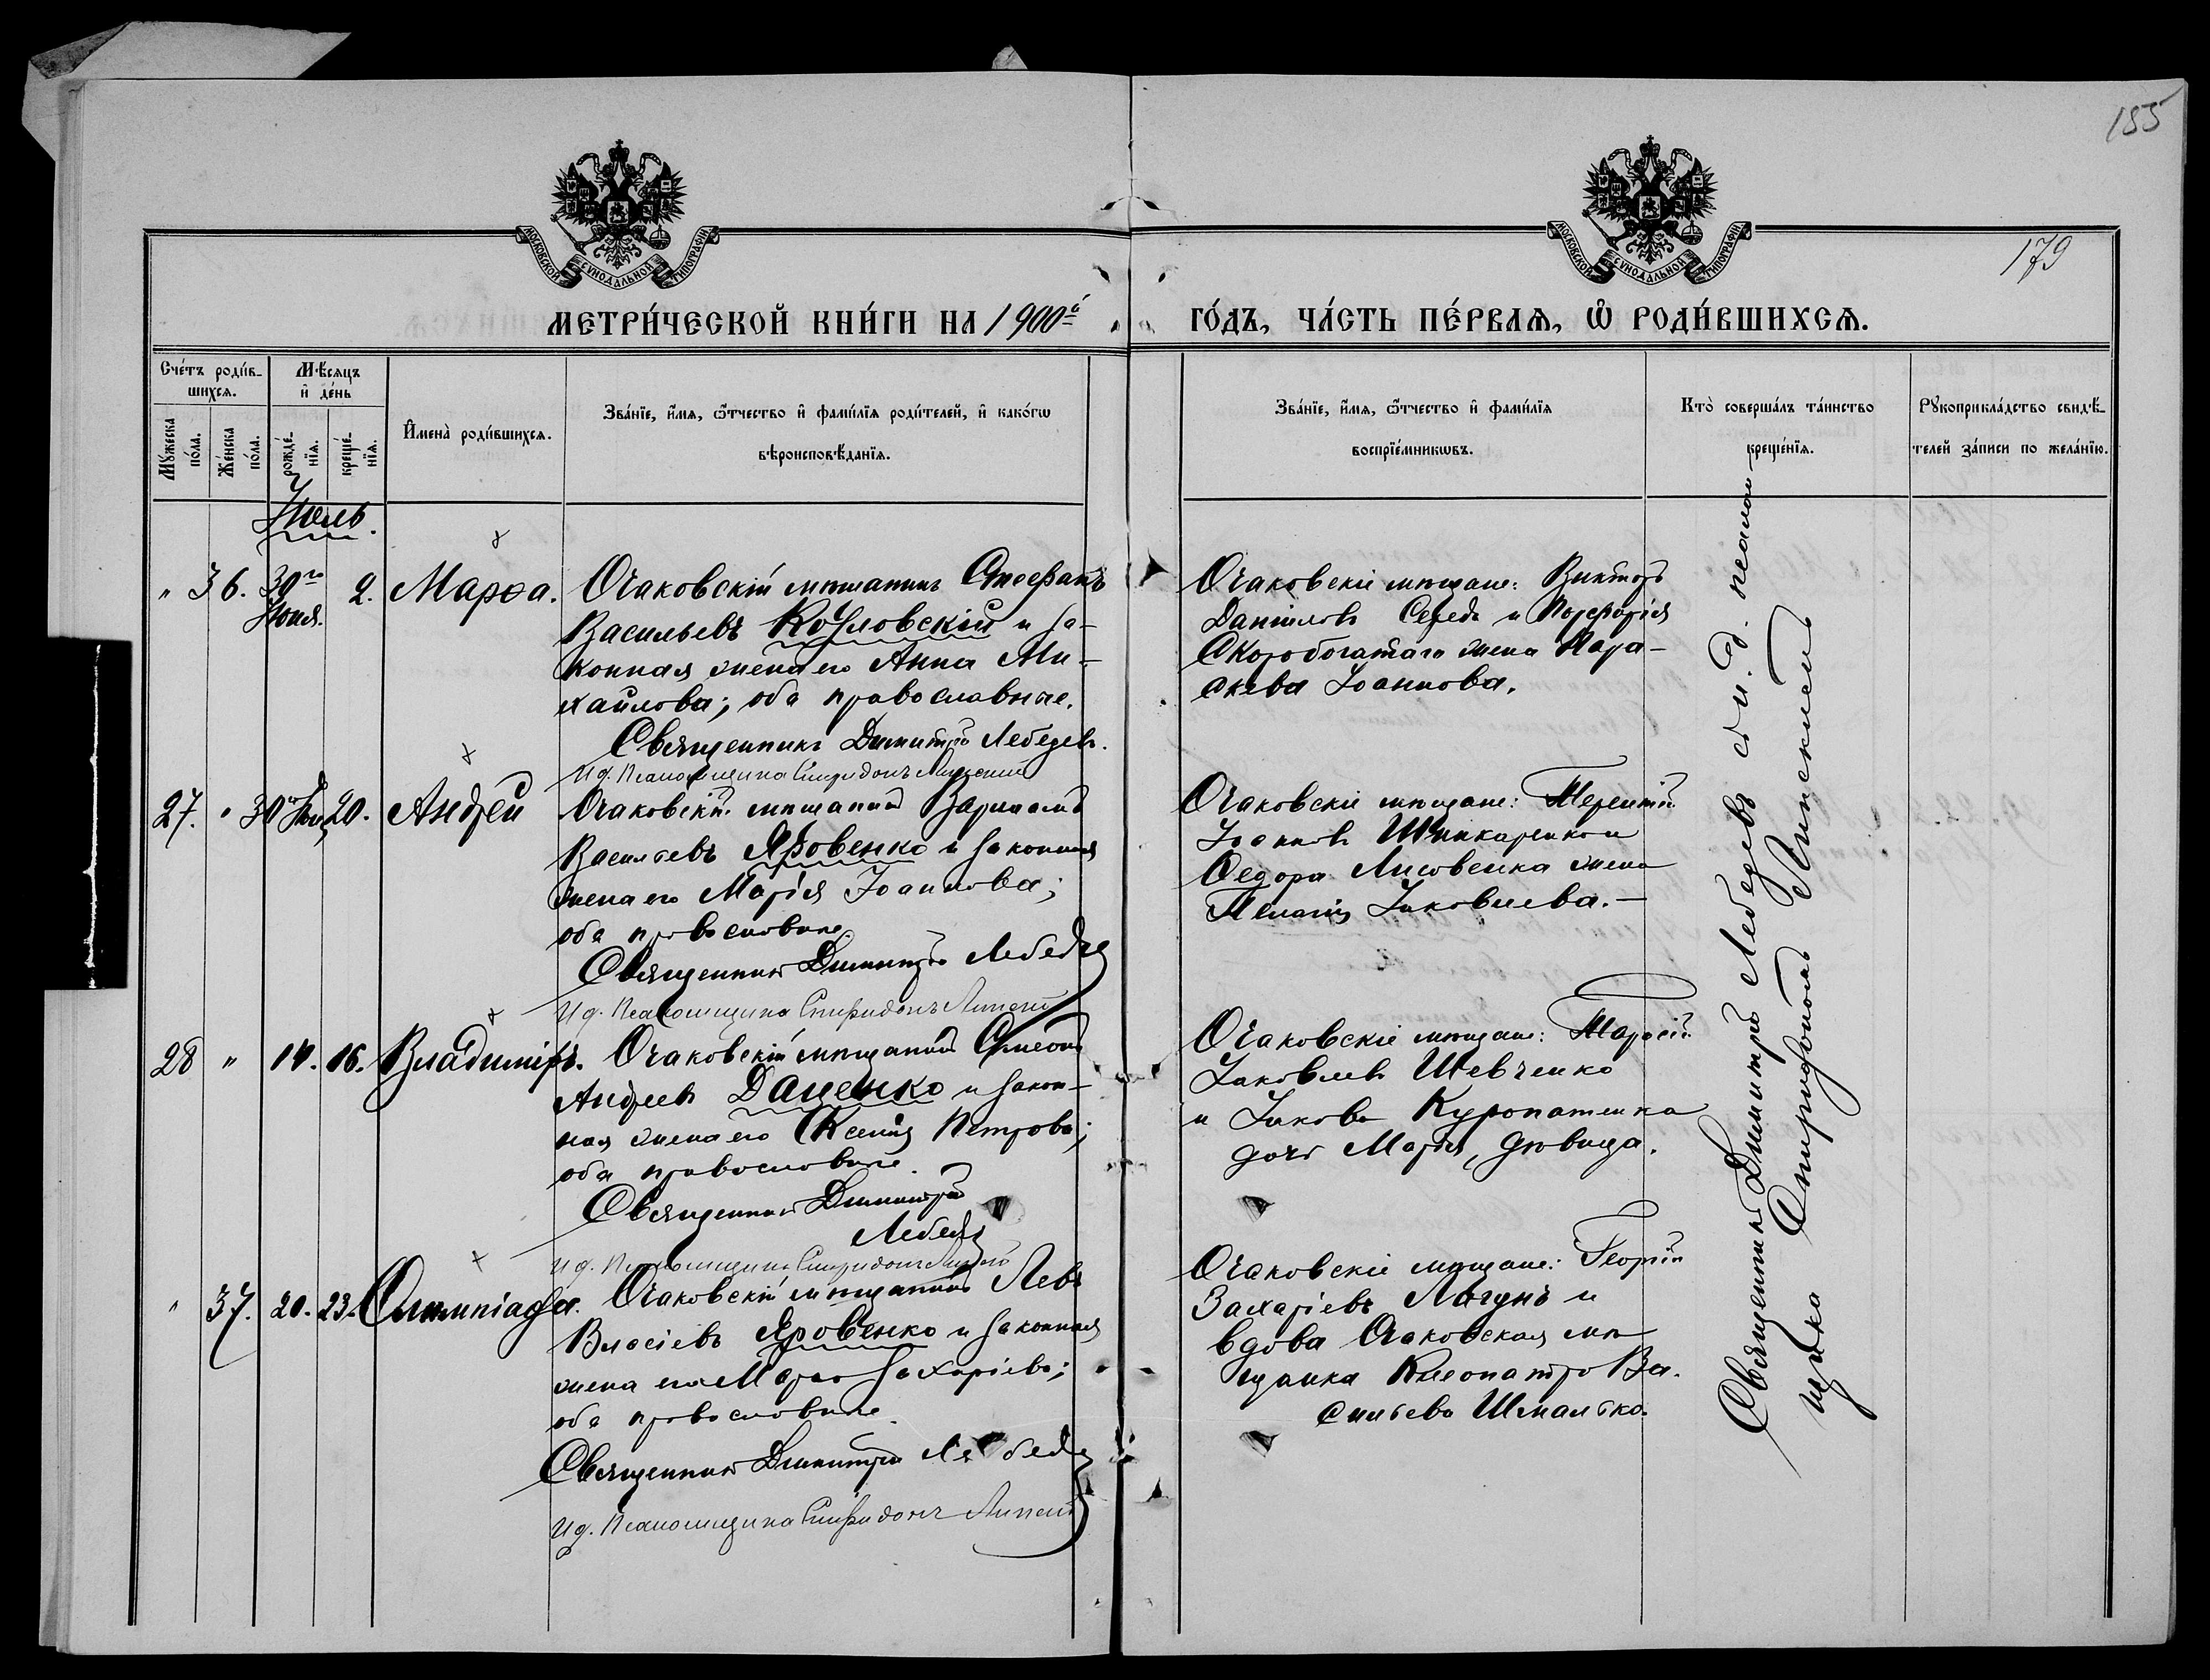 155
179
МОСКОВСКОЙ СѴНОДАЛЬНОЙ ТИПОГРАФІИ
МОСКОВСКОЙ СѴНОДАЛЬНОЙ ТИПОГРАФІИ
МЕТРИ́ЧЕСКОЙ КНИ́ГИ НА 1900й
ГО́ДЪ, ЧА́СТЬ ПЕ́РВАЯ, Ѡ РОДИ́ВШИХСЯ.
Сче́тъ роди́в-
шихся.
Мꙋжеска
по́ла.
Же́нска
по́ла.
Мѣ́сяцъ
и҆ де́нь
рожде́-
нїя.
креще́-
нїя.
И҆мена̀ роди́вшихся.
Зва́нїе, и҆́мя, ѻ҆́тчество и҆ фами́лїя роди́телей, и҆ како́гѡ
вѣроисповѣ́данїя.
Зва́нїе, и҆́мя, ѻ҆́тчество и҆ фами́лїя
воспрїе́мникѡвъ.
Кто̀ соверша́лъ та́инство
креще́нїя.
Рꙋкоприкла́дство свидѣ́-
телей за́писи по жела́нїю.
Июль.
" 36. 30го Июня. 2. Марѳа.
Очаковскій мѣщанинъ Стефанъ
Васильевъ Козловскій и за-
конная жена его Анна Ми-
хайлова; оба православные.
Священникъ Димитрій Лебедевъ.
И.д. Псаломщика Спиридонъ Липскій
Очаковскіе мѣщане: Викторъ
Даніиловъ Середа и Порфирія
Скоробогатаго жена Пара-
скева Іоаннова.
27. " 30 Июня 20. Андрей
Очаковскій мѣщанинъ Варлаамъ
Васильевъ Яровенко и законная
жена его Марія Іоаннова;
оба православные.
Священникъ Димитрій Лебедевъ
И.д. Псаломщика Спиридонъ Липскій
Очаковскіе мѣщане: Терентій
Іоанновъ Шинкаренко и
Ѳедора Лисовенка жена
Пелагія Іаковлева.—
28 " 14. 16. Владиміръ.
Очаковскій мѣщанинъ Симеонъ
Андреевъ Даценко и закон-
ная жена его Ксенія Петрова;
оба православные.
Священникъ Димитрій
Лебедевъ
И.д. Псаломщика Спиридонъ Липскій
Очаковскіе мѣщане: Тарасій
Іаковлевъ Шевченко
и Іакова Куропатенка
дочь Марія, дѣвица.
" 37. 20. 23. Олимпіада.
Очаковскій мѣщанинъ Левъ
Власіевъ Яровенко и законная
жена его Марѳа Захаріева;
оба православные.
Священникъ Димитрій Лебедевъ
И.д. Псаломщика Спиридонъ Липскій
Очаковскіе мѣщане: Георгій
Захаріевъ Лагунъ и
вдова Очаковская мѣ-
щанка Клеопатра Ва-
сильева Шмалько.
Священникъ Димитрій Лебедевъ съ и. д. псалом-
щика Спиридономъ Липскимъ